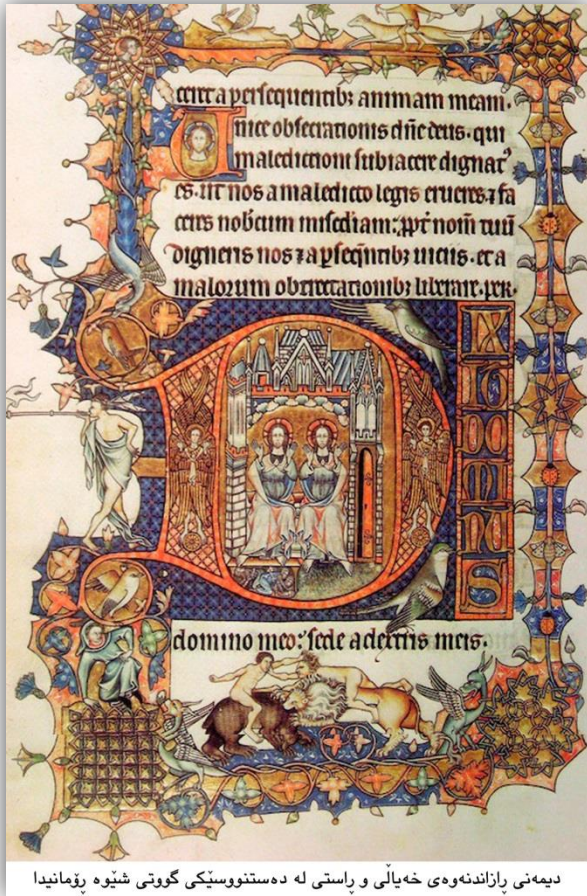 ceret a persequentibz animam meam.
Unice obsecrationis dn̄e deus. qui
maledictioni subiacere dignat᾿
es. ut nos a maledicto legis erueres. ⁊ fa
ciens nobcum misc̄diam: ꝓpt̄ nom̄ tuū
digneris nos ⁊ a ꝑseq̄ntibz uiciis. et a
malorum obtrectationibz liberare. per.
D
domino meo: sede a dextris meis.
دیمەنی ڕازاندنەوەی خەیاڵی و ڕاستی لە دەستنووسێکی گووتی شێوە ڕۆمانیدا